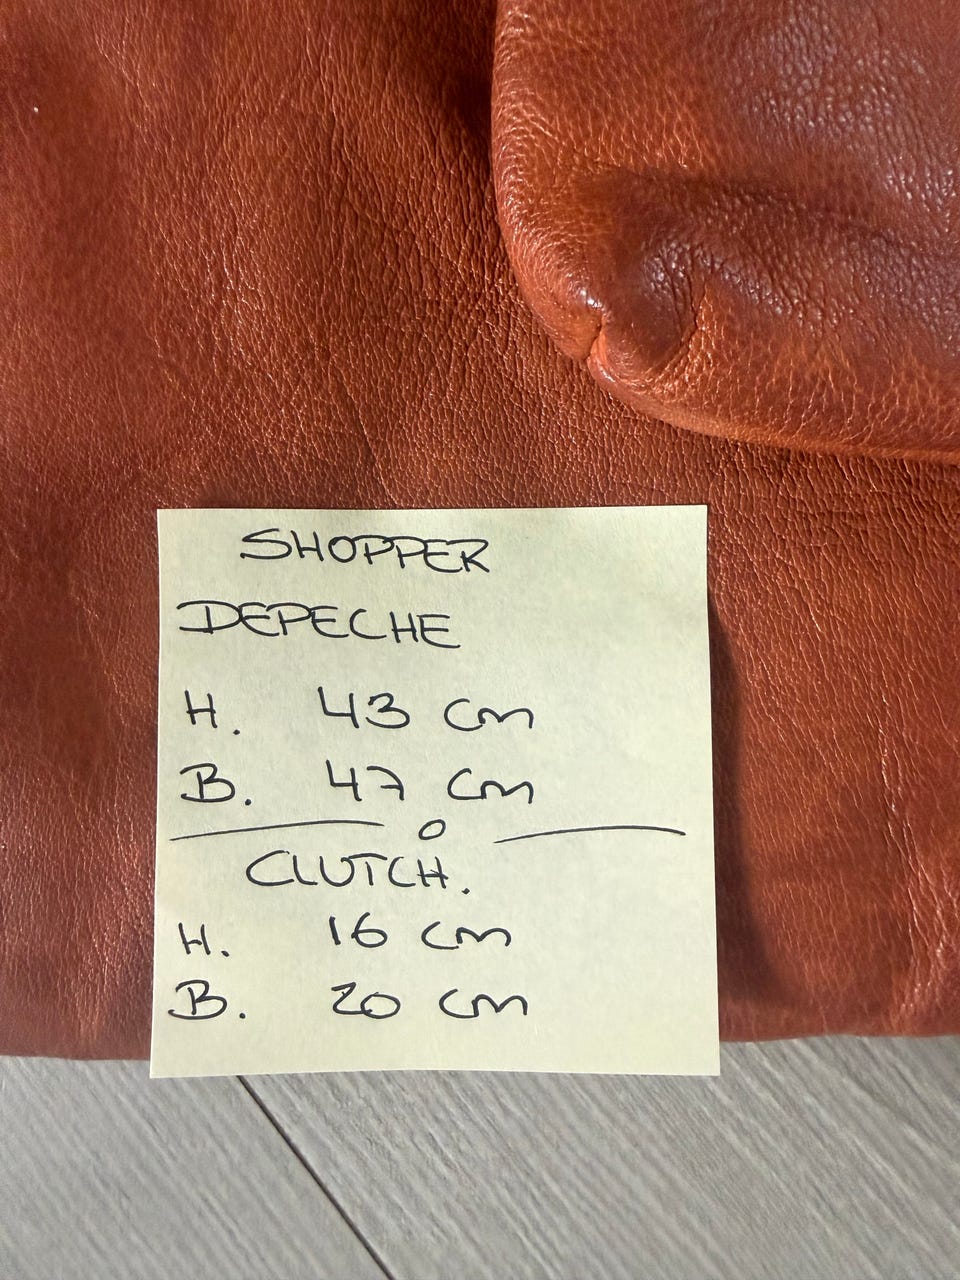 SHOPPER
DEPECHE
H. 43 cm
B. 47 cm
CLUTCH.
H. 16 cm
B. 20 cm